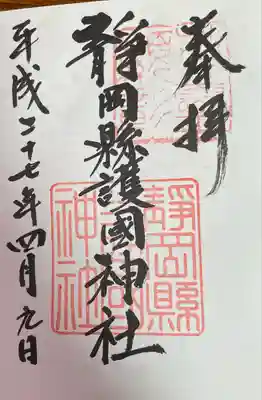 奉拝
靜岡縣護國神社
平成二十七年四月九日
靜岡縣
神社